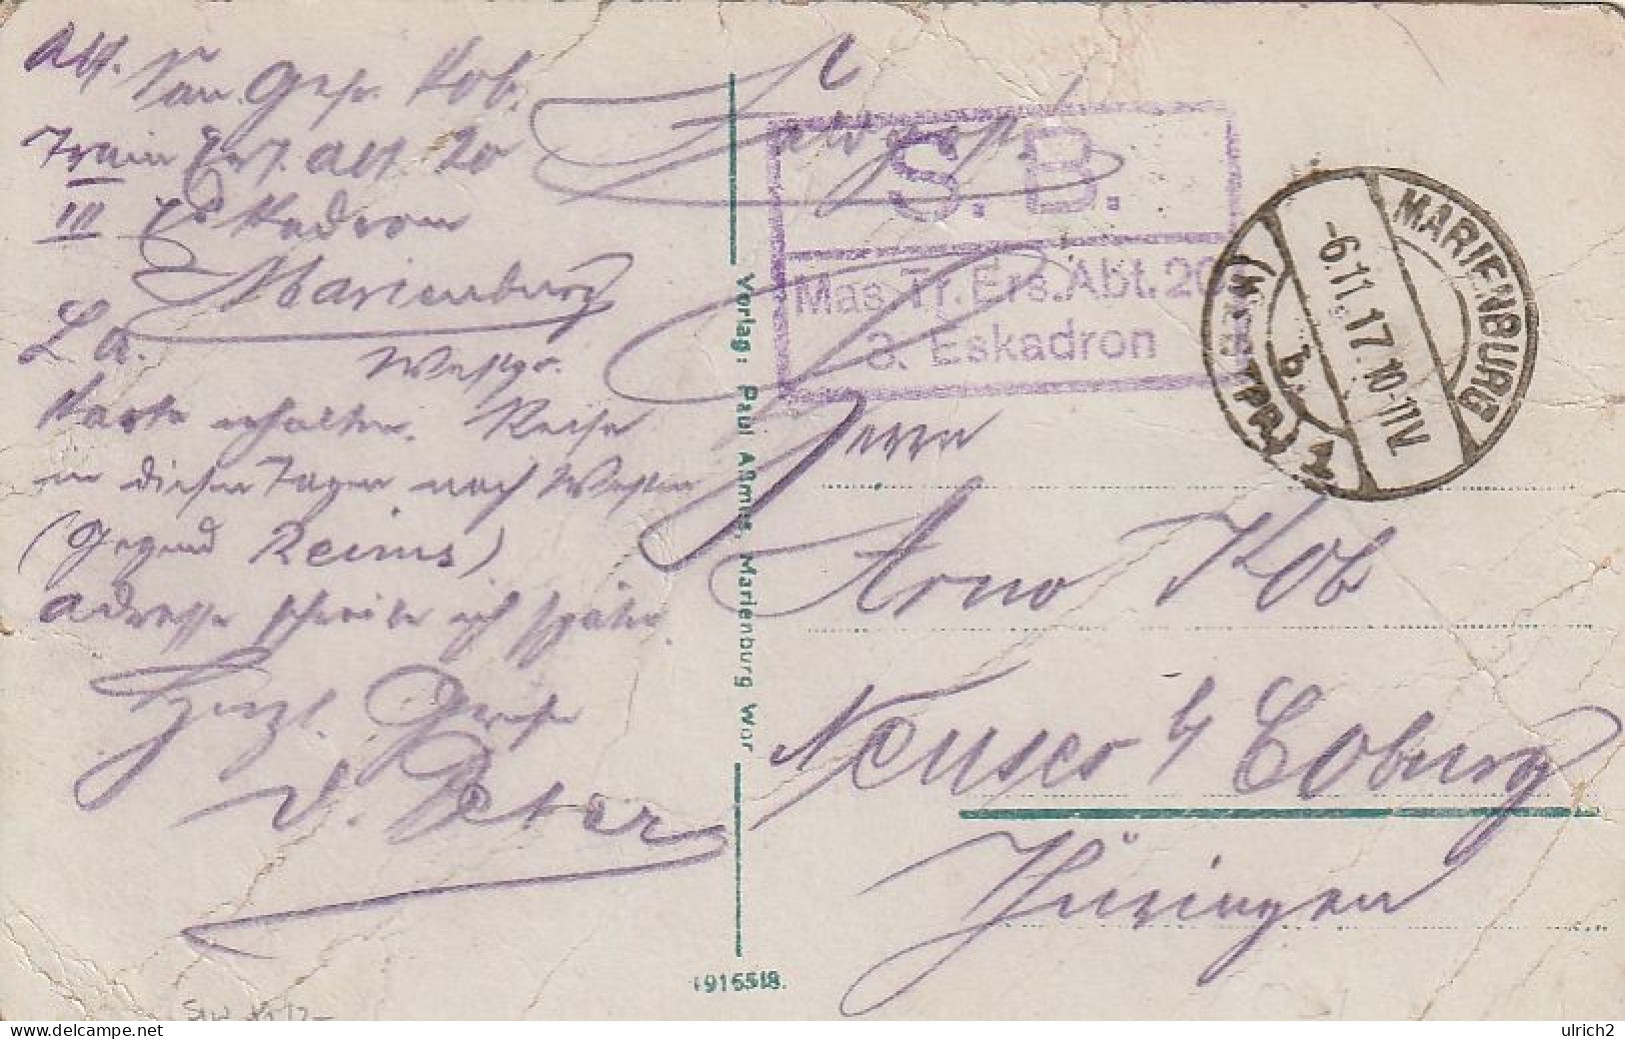 Abs. San. Gefr. Kob.
Train Ers. Abt. 20
III Eskadron
Marienburg
Westpr.
L. A.
Karte erhalten. Reise
in diesen Tagen nach Westen
(Gegend Reims)
Adresse schreibe ich später.
Herzl. Grüße
d. Peter
Feldpost
S. B.
Mas. Tr. Ers. Abt. 20
3. Eskadron
MARIENBURG
(WESTPR.) 1
b.
-6.11.17.10-11V.
Herrn
Arno Kob
Neuses b/ Coburg
Thüringen
Verlag: Paul Aßmus, Marienburg Wpr
1916518.
ulrich2